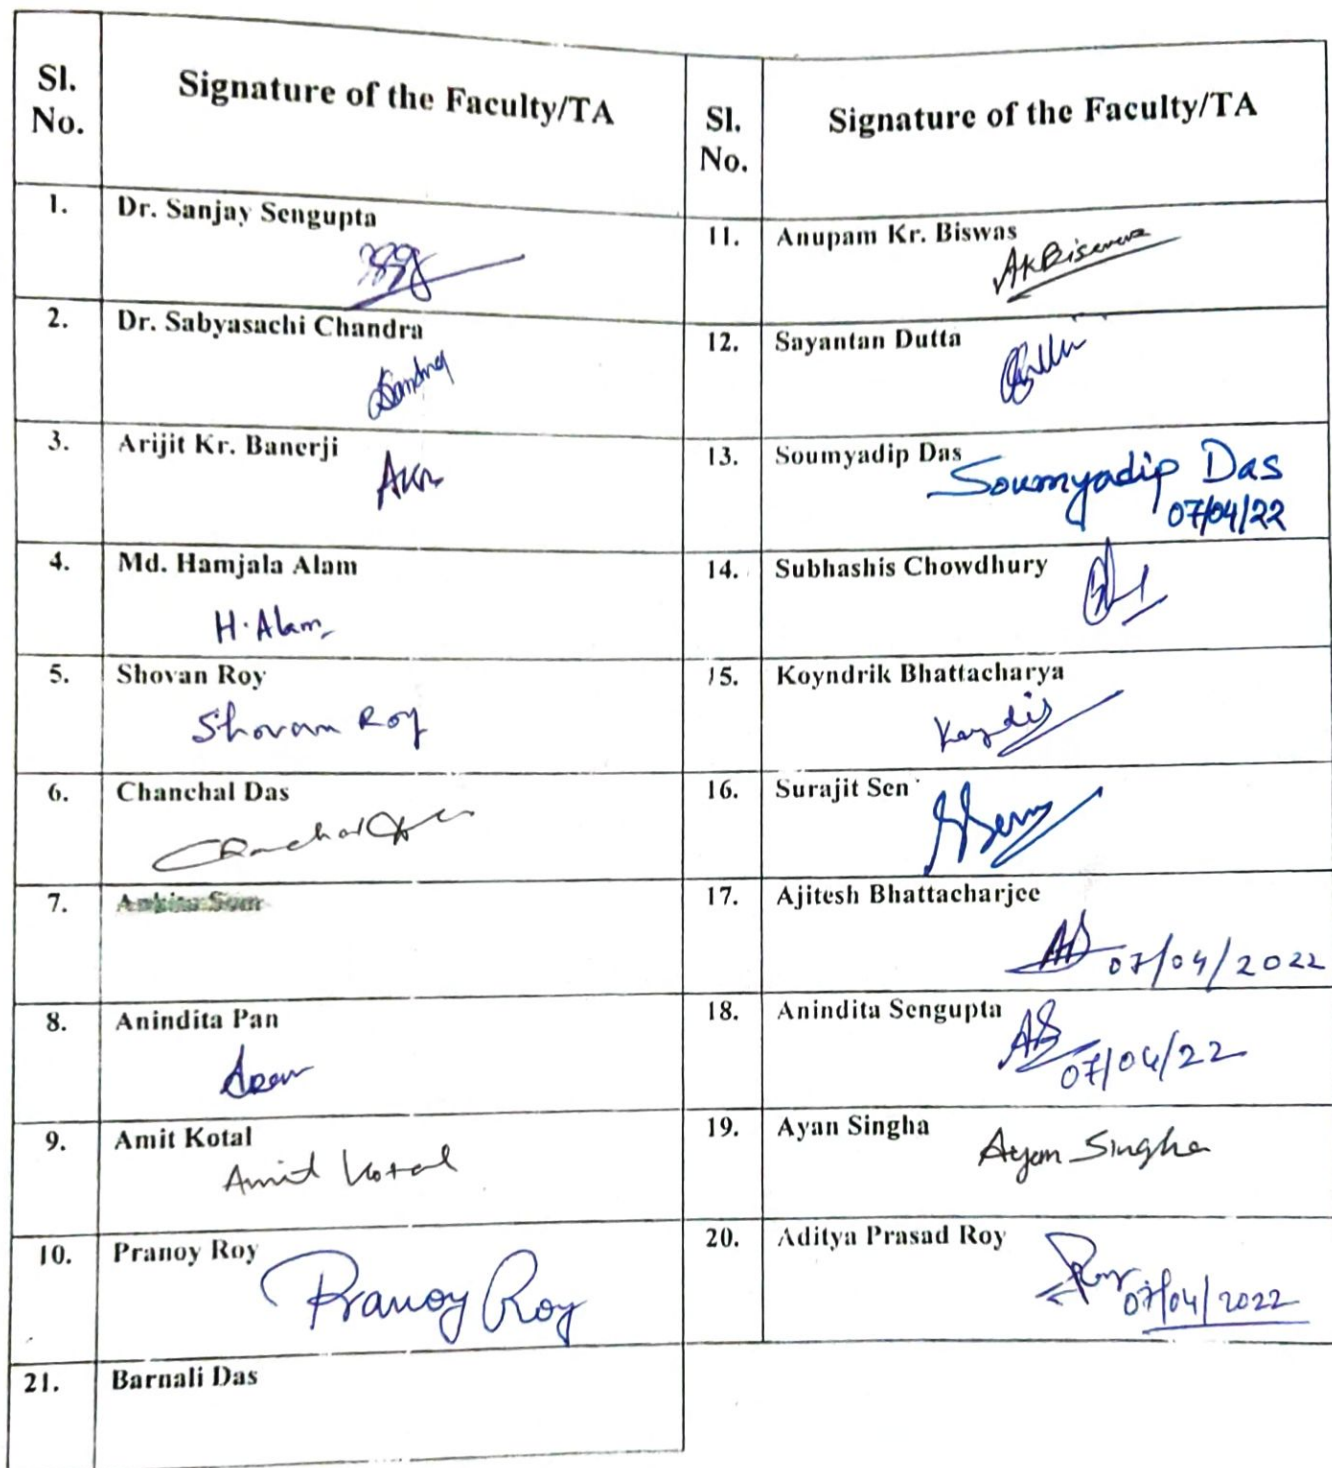 Sl. No.
Signature of the Faculty/TA
1.
Dr. Sanjay Sengupta
2.
Dr. Sabyasachi Chandra
3.
Arijit Kr. Banerji
4.
Md. Hamjala Alam
H. Alam
5.
Shovan Roy
Shovan Roy
6.
Chanchal Das
7.
8.
Anindita Pan
9.
Amit Kotal
Amit Kotal
10.
Pranoy Roy
Pranoy Roy
21.
Barnali Das
Sl. No.
Signature of the Faculty/TA
11.
Anupam Kr. Biswas
AKBiswas
12.
Sayantan Dutta
13.
Soumyadip Das
Soumyadip Das
07/04/22
14.
Subhashis Chowdhury
15.
Koyndrik Bhattacharya
16.
Surajit Sen
17.
Ajitesh Bhattacharjee
07/04/2022
18.
Anindita Sengupta
AS
07/04/22
19.
Ayan Singha
Ayan Singha
20.
Aditya Prasad Roy
07/04/2022